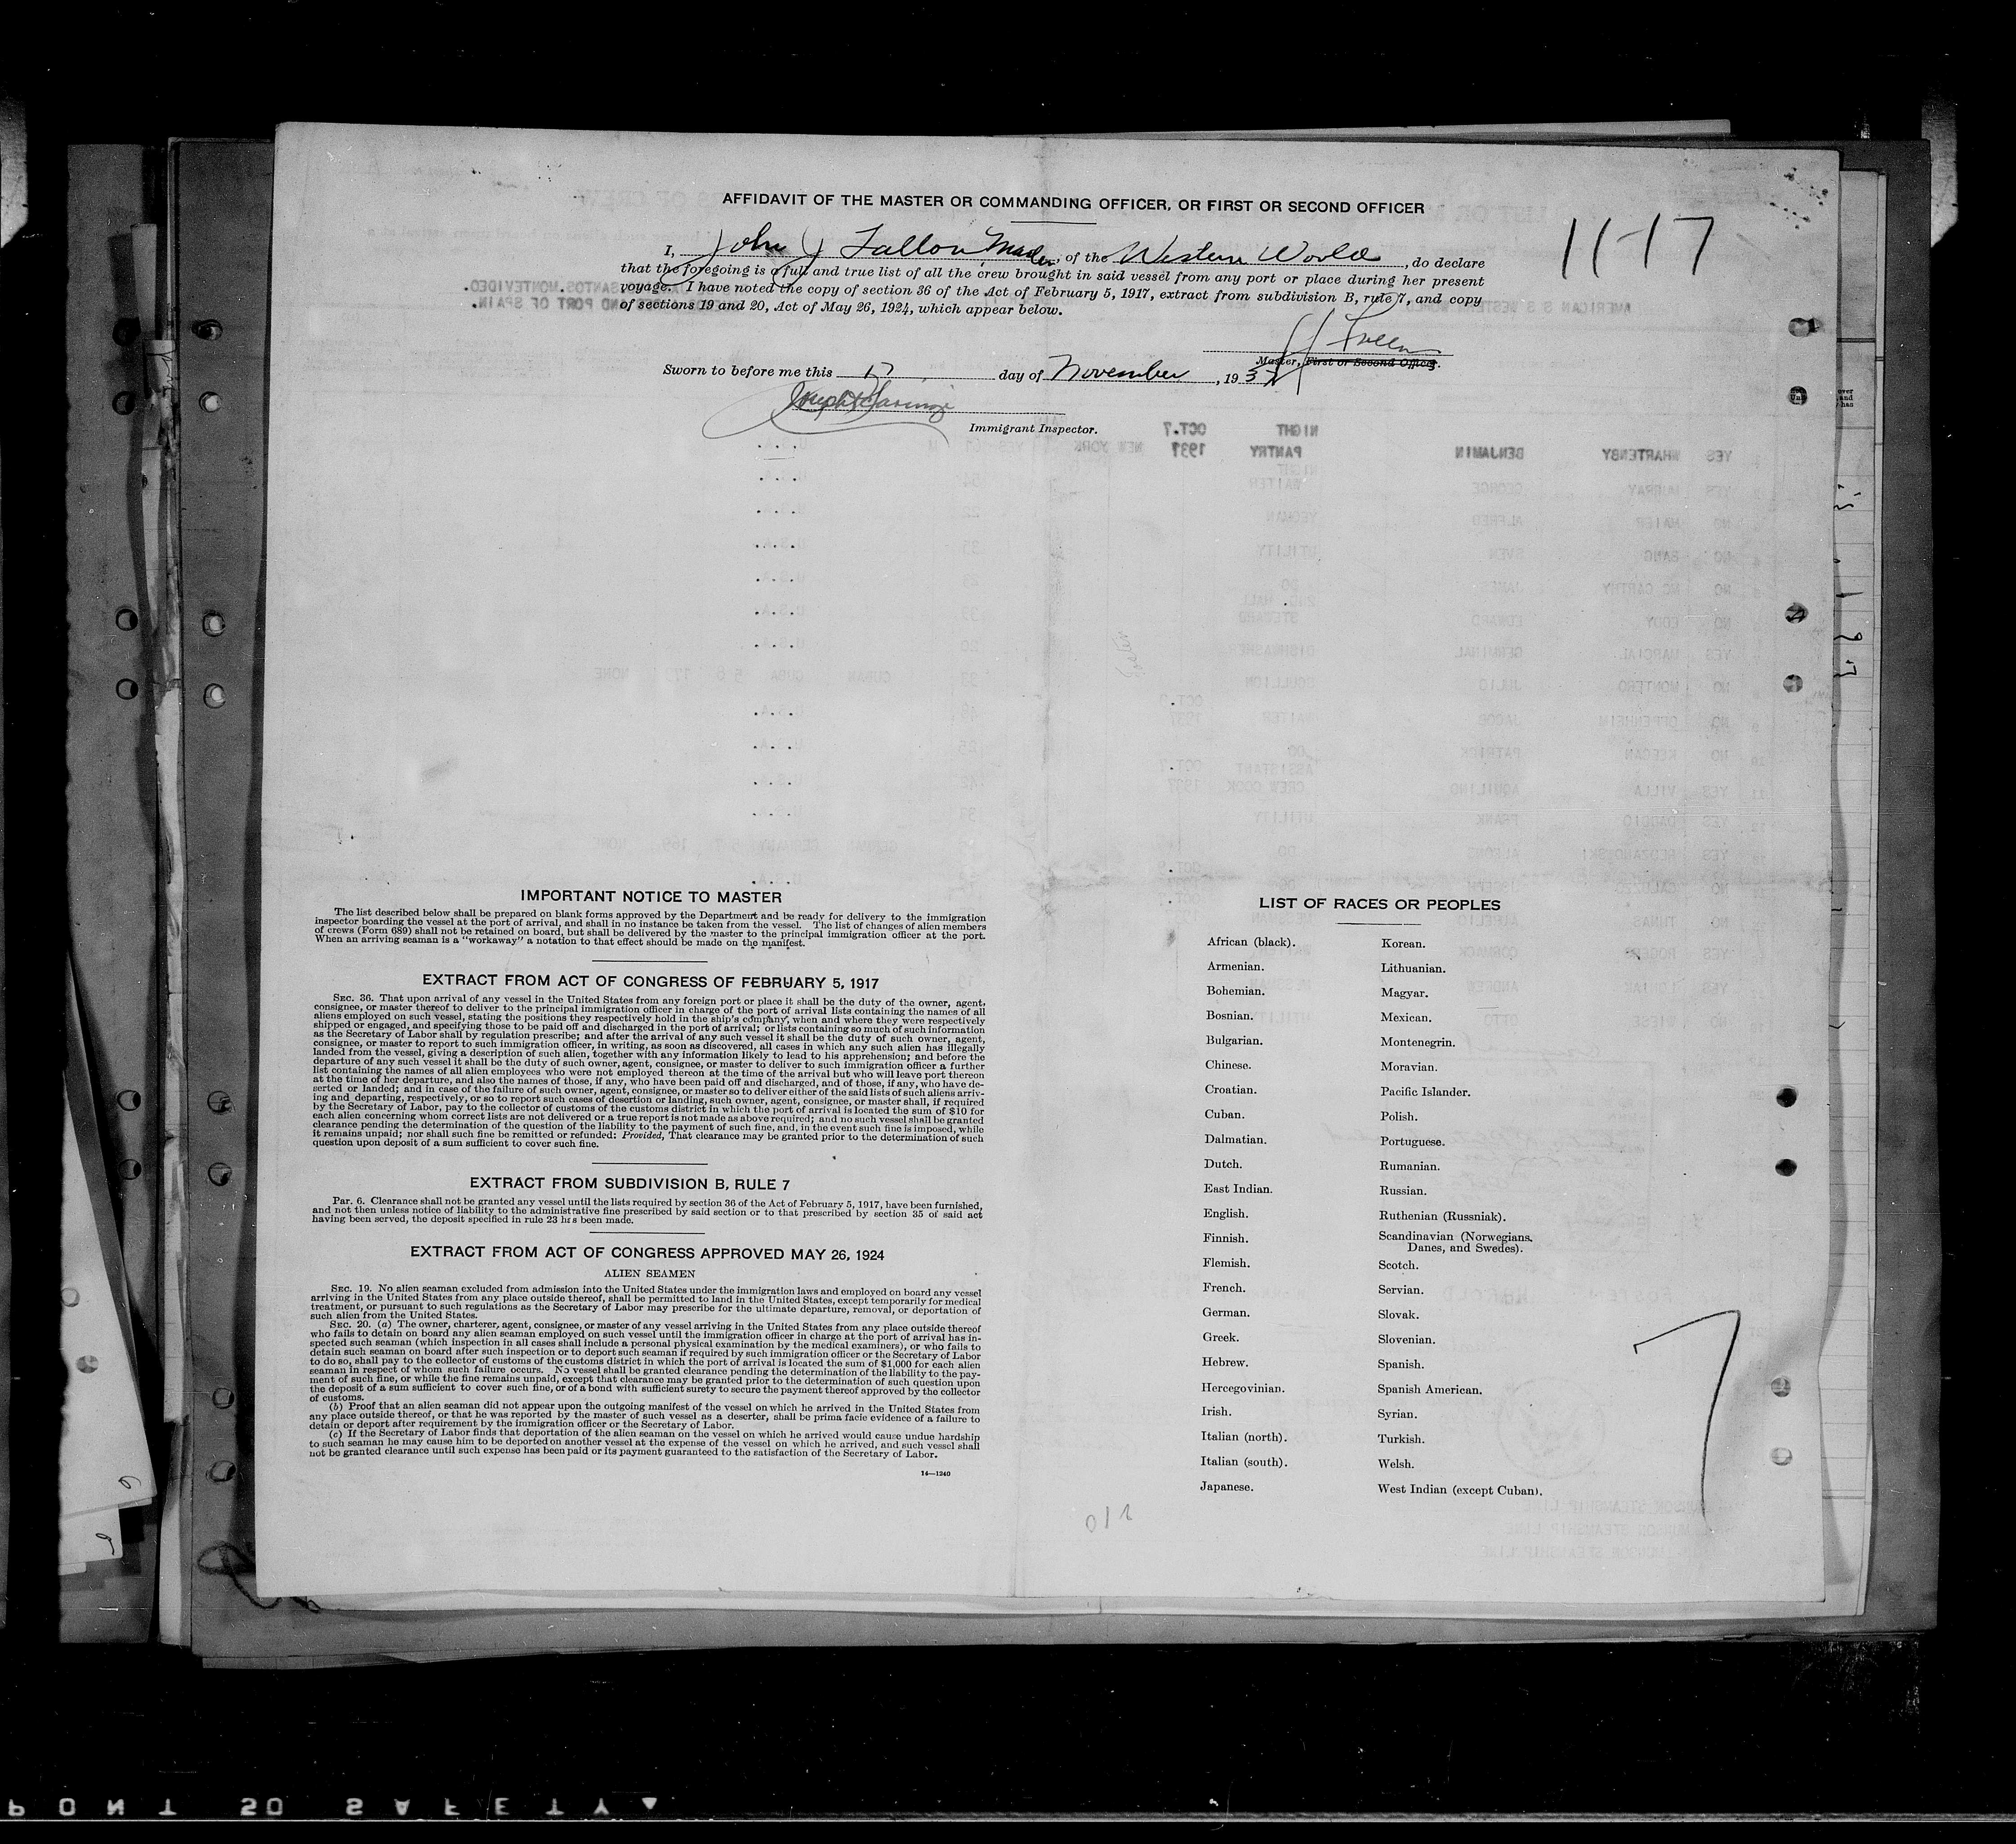 AFFIDAVIT OF THE MASTER OR COMMANDING OFFICER, OR FIRST OR SECOND OFFICER
11-17
I, John J Fallon, Master, of the Western World, do declare
that the foregoing is a full and true list of all the crew brought in said vessel from any port or place during her present
voyage. I have noted the copy of section 36 of the Act of February 5, 1917, extract from subdivision B, rule 7, and copy
of sections 19 and 20, Act of May 26, 1924, which appear below.
Master, First or Second Officer.
Sworn to before me this 17 day of November, 1937
Immigrant Inspector.
IMPORTANT NOTICE TO MASTER
The list described below shall be prepared on blank forms approved by the Department and be ready for delivery to the immigration
inspector boarding the vessel at the port of arrival, and shall in no instance be taken from the vessel. The list of changes of alien members
of crews (Form 689) shall not be retained on board, but shall be delivered by the master to the principal immigration officer at the port.
When an arriving seaman is a "workaway" a notation to that effect should be made on the manifest.
EXTRACT FROM ACT OF CONGRESS OF FEBRUARY 5, 1917
SEC. 36. That upon arrival of any vessel in the United States from any foreign port or place it shall be the duty of the owner, agent,
consignee, or master thereof to deliver to the principal immigration officer in charge of the port of arrival lists containing the names of all
aliens employed on such vessel, stating the positions they respectively hold in the ship's company, when and where they were respectively
shipped or engaged, and specifying those to be paid off and discharged in the port of arrival; or lists containing so much of such information
as the Secretary of Labor shall by regulation prescribe; and after the arrival of any such vessel it shall be the duty of such owner, agent,
consignee, or master to report to such immigration officer, in writing, as soon as discovered, all cases in which any such alien has illegally
landed from the vessel, giving a description of such alien, together with any information likely to lead to his apprehension; and before the
departure of any such vessel it shall be the duty of such owner, agent, consignee, or master to deliver to such immigration officer a further
list containing the names of all alien employees who were not employed thereon at the time of the arrival but who will leave port thereon
at the time of her departure, and also the names of those, if any, who have been paid off and discharged, and of those, if any, who have de-
serted or landed; and in case of the failure of such owner, agent, consignee, or master so to deliver either of the said lists of such aliens arriv-
ing and departing, respectively, or so to report such cases of desertion or landing, such owner, agent, consignee, or master shall, if required
by the Secretary of Labor, pay to the collector of customs of the customs district in which the port of arrival is located the sum of $10 for
each alien concerning whom correct lists are not delivered or a true report is not made as above required; and no such vessel shall be granted
clearance pending the determination of the question of the liability to the payment of such fine, and, in the event such fine is imposed, while
it remains unpaid; nor shall such fine be remitted or refunded: Provided, That clearance may be granted prior to the determination of such
question upon deposit of a sum sufficient to cover such fine.
EXTRACT FROM SUBDIVISION B, RULE 7
Par. 6. Clearance shall not be granted any vessel until the lists required by section 36 of the Act of February 5, 1917, have been furnished,
and not then unless notice of liability to the administrative fine prescribed by said section or to that prescribed by section 35 of said act
having been served, the deposit specified in rule 23 has been made.
EXTRACT FROM ACT OF CONGRESS APPROVED MAY 26, 1924
ALIEN SEAMEN
SEC. 19. No alien seaman excluded from admission into the United States under the immigration laws and employed on board any vessel
arriving in the United States from any place outside thereof, shall be permitted to land in the United States, except temporarily for medical
treatment, or pursuant to such regulations as the Secretary of Labor may prescribe for the ultimate departure, removal, or deportation of
such alien from the United States.
SEC. 20. (a) The owner, charterer, agent, consignee, or master of any vessel arriving in the United States from any place outside thereof
who fails to detain on board any alien seaman employed on such vessel until the immigration officer in charge at the port of arrival has in-
spected such seaman (which inspection in all cases shall include a personal physical examination by the medical examiners), or who fails to
detain such seaman on board after such inspection or to deport such seaman if required by such immigration officer or the Secretary of Labor
to do so, shall pay to the collector of customs of the customs district in which the port of arrival is located the sum of $1,000 for each alien
seaman in respect of whom such failure occurs. No vessel shall be granted clearance pending the determination of the liability to the pay-
ment of such fine, or while the fine remains unpaid, except that clearance may be granted prior to the determination of such question upon
the deposit of a sum sufficient to cover such fine, or of a bond with sufficient surety to secure the payment thereof approved by the collector
of customs.
(b) Proof that an alien seaman did not appear upon the outgoing manifest of the vessel on which he arrived in the United States from
any place outside thereof, or that he was reported by the master of such vessel as a deserter, shall be prima facie evidence of a failure to
detain or deport after requirement by the immigration officer or the Secretary of Labor.
(c) If the Secretary of Labor finds that deportation of the alien seaman on the vessel on which he arrived would cause undue hardship
to such seaman he may cause him to be deported on another vessel at the expense of the vessel on which he arrived, and such vessel shall
not be granted clearance until such expense has been paid or its payment guaranteed to the satisfaction of the Secretary of Labor.
14—1240
LIST OF RACES OR PEOPLES
African (black).
Armenian.
Bohemian.
Bosnian.
Bulgarian.
Chinese.
Croatian.
Cuban.
Dalmatian.
Dutch.
East Indian.
English.
Finnish.
Flemish.
French.
German.
Greek.
Hebrew.
Hercegovinian.
Irish.
Italian (north).
Italian (south).
Japanese.
Korean.
Lithuanian.
Magyar.
Mexican.
Montenegrin.
Moravian.
Pacific Islander.
Polish.
Portuguese.
Rumanian.
Russian.
Ruthenian (Russniak).
Scandinavian (Norwegians,
Danes, and Swedes).
Scotch.
Servian.
Slovak.
Slovenian.
Spanish.
Spanish American.
Syrian.
Turkish.
Welsh.
West Indian (except Cuban).
7